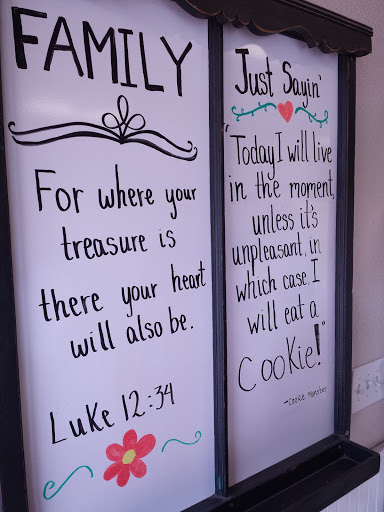 FAMILY
For where your
treasure is
there your heart
will also be.
Luke 12:34
Just Sayin'
"Today I will live
in the moment,
unless it's
unpleasant, in
which case I
will eat a
Cookie!"
-Cookie Monster